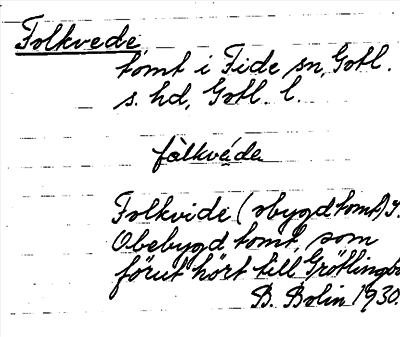 Folkvede,
tomt i Fide sn, Gotl.
s. hd, Gotl. l.
fàlkvéde
Folkvide (obygd tomt) S.
Obebygd tomt, som
förut hört till Grötlingbo
B. Bolin 1930.